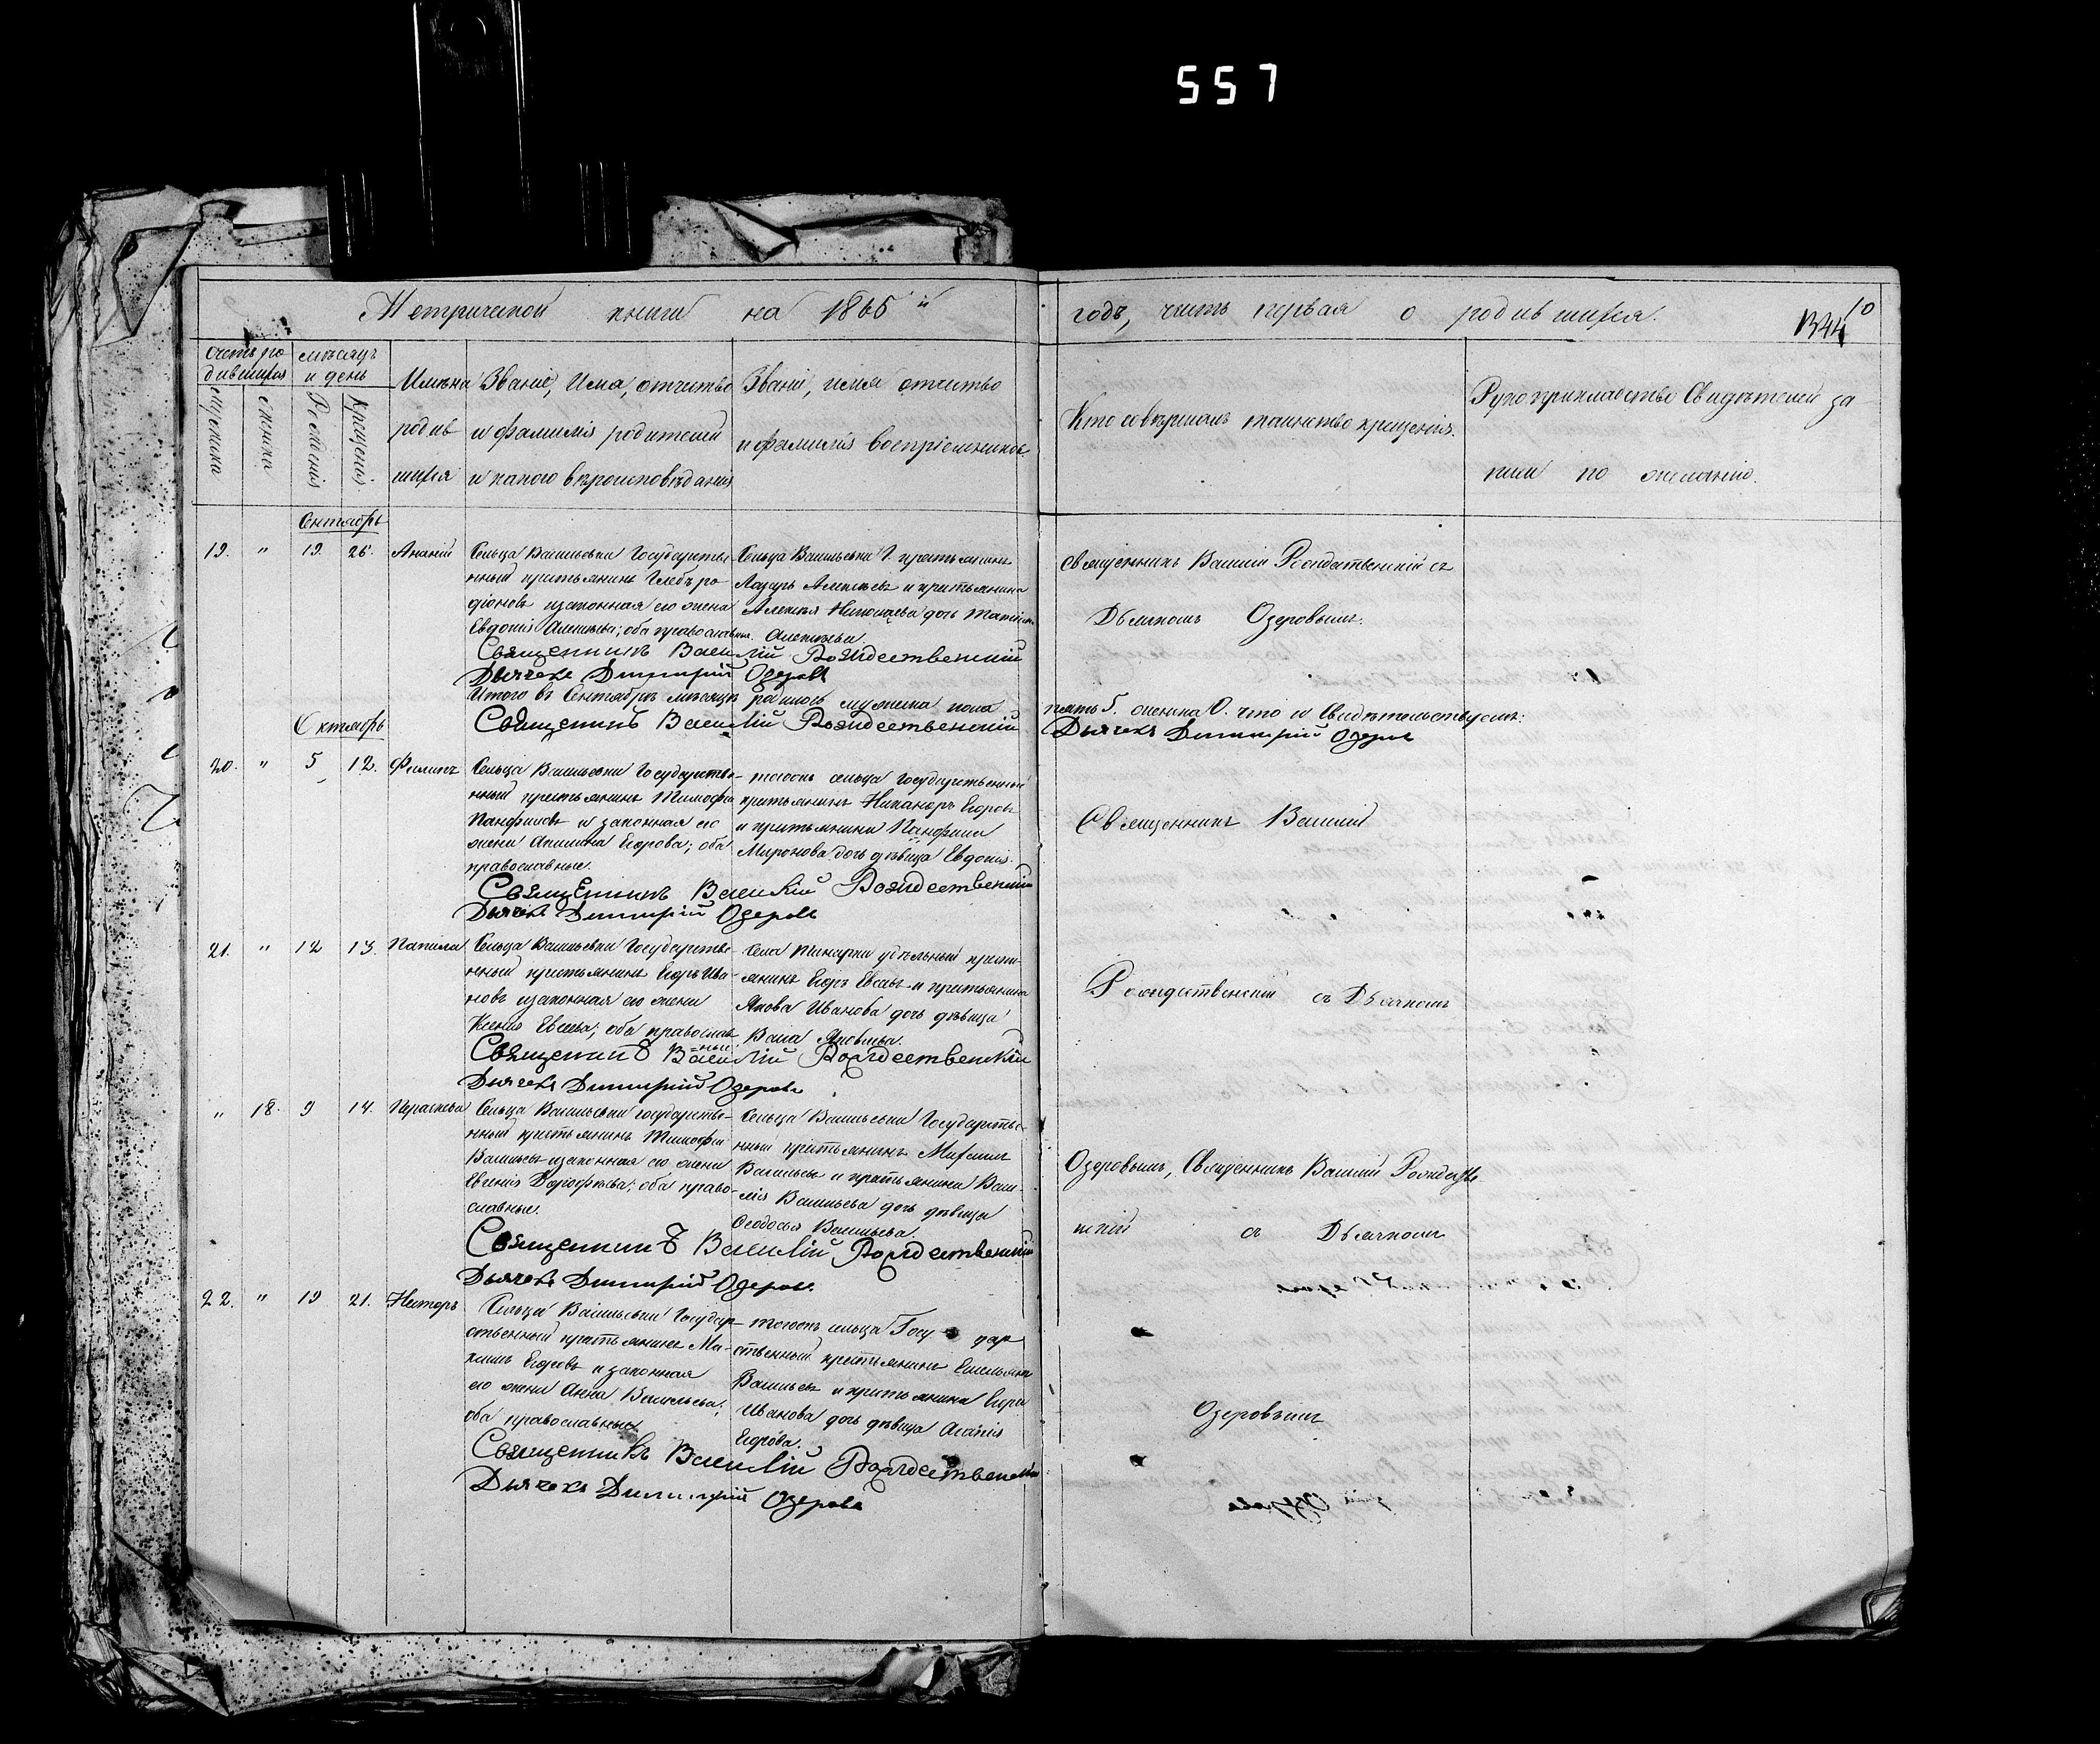 557
Метрической книги на 1865й
годъ, часть первая о родившихся.
10
1344
Счетъ ро
дившихся
мѣсяцъ
и день
мужеска
женска
Рожденія
Крещенія.
Имена
родив
шихся
Званіе, Имя, отчество
и фамилія родителей
и какого вѣроисповѣданія
Званіе, имя отчество
и фамилія воспріемниковъ.
Кто совершалъ таинство крещенія.
Рукоприкладство Свидѣтелей за
писи по желанію.
Сентябрь
19. " 19. 26. Ананій
Сельца Васильевки Государстве
нный крестьянинъ Глебъ Ро
діоновъ и законная его жена
Евдокія Алексѣева; оба православные.
Сельца Васильевки Г. крестьянинъ
Лазарь Алексѣевъ и крестьянина
Алексѣя Николаева дочь
Алексѣева.
Священникъ Василій Рождественскій съ
Дьячкомъ Озеровымъ.
Священникъ Василій Рождественскій
Дьячекъ Димитрій Озеровъ
Итого въ Сентябрѣ мѣсяцѣ родилось мужеска пола
пять 5. женска 0. что и свидѣтельствуемъ:
Священникъ Василій Рождественскій
Дьячекъ Димитрій Озеровъ
Октябрь
20. " 5 12. Филипъ
Сельца Васильевки Государстве-
нный крестьянинъ Тимофей
Панфиловъ и законная его
жена Акилина Егорова; оба
православные.
тогожъ сельца Государственный
крестьянинъ Никаноръ Егоровъ
и крестьянина Панфила
Миронова дочь дѣвица Евдокія.
Священникъ Василій
Священникъ Василій Рождественскій
Дьячекъ Димитрій Озеровъ
21. " 12 13.
Сельца Васильевки Государстве-
нный крестьянинъ Егоръ Ива-
новъ и законная его жена
Ксенія Евсеева; оба православ-
ные.
Села удѣльный кресть-
янинъ Егоръ Евсеевъ и крестьянина
Якова Иванова дочь дѣвица
Васа Яковлева.
Рождественскій съ Дьячкомъ
Священникъ Василій Рождественскій
Дьячекъ Димитрій Озеровъ
" 18. 9 14. Параскева
Сельца Васильевки государстве-
нный крестьянинъ Тимофей
Васильевъ и законная его жена
Евгенія Дорофѣева; оба право-
славные.
Сельца Васильевки Государстве-
нный крестьянинъ Михаилъ
Васильевъ и крестьянина Васи-
лія Васильева дочь дѣвица
Ѳеодосья Васильева.
Озеровымъ, Священникъ Василій Рождестве
нскій съ Дьячкомъ
Священникъ Василій Рождественскій
Дьячекъ Димитрій Озеровъ.
22. " 19 21. Несторъ
Сельца Васильевки Государ-
ственный крестьянинъ Ма-
ксимъ Егоровъ и законная
его жена Анна Васильева;
оба православные
тогожъ сельца Госу-дар
ственный крестьянинъ Емельянъ
Васильевъ и крестьянина Егора
Иванова дочь дѣвица Агафія
Егорова.
Озеровымъ
Священникъ Василій Рождественскій
Дьячекъ Димитрій Озеровъ